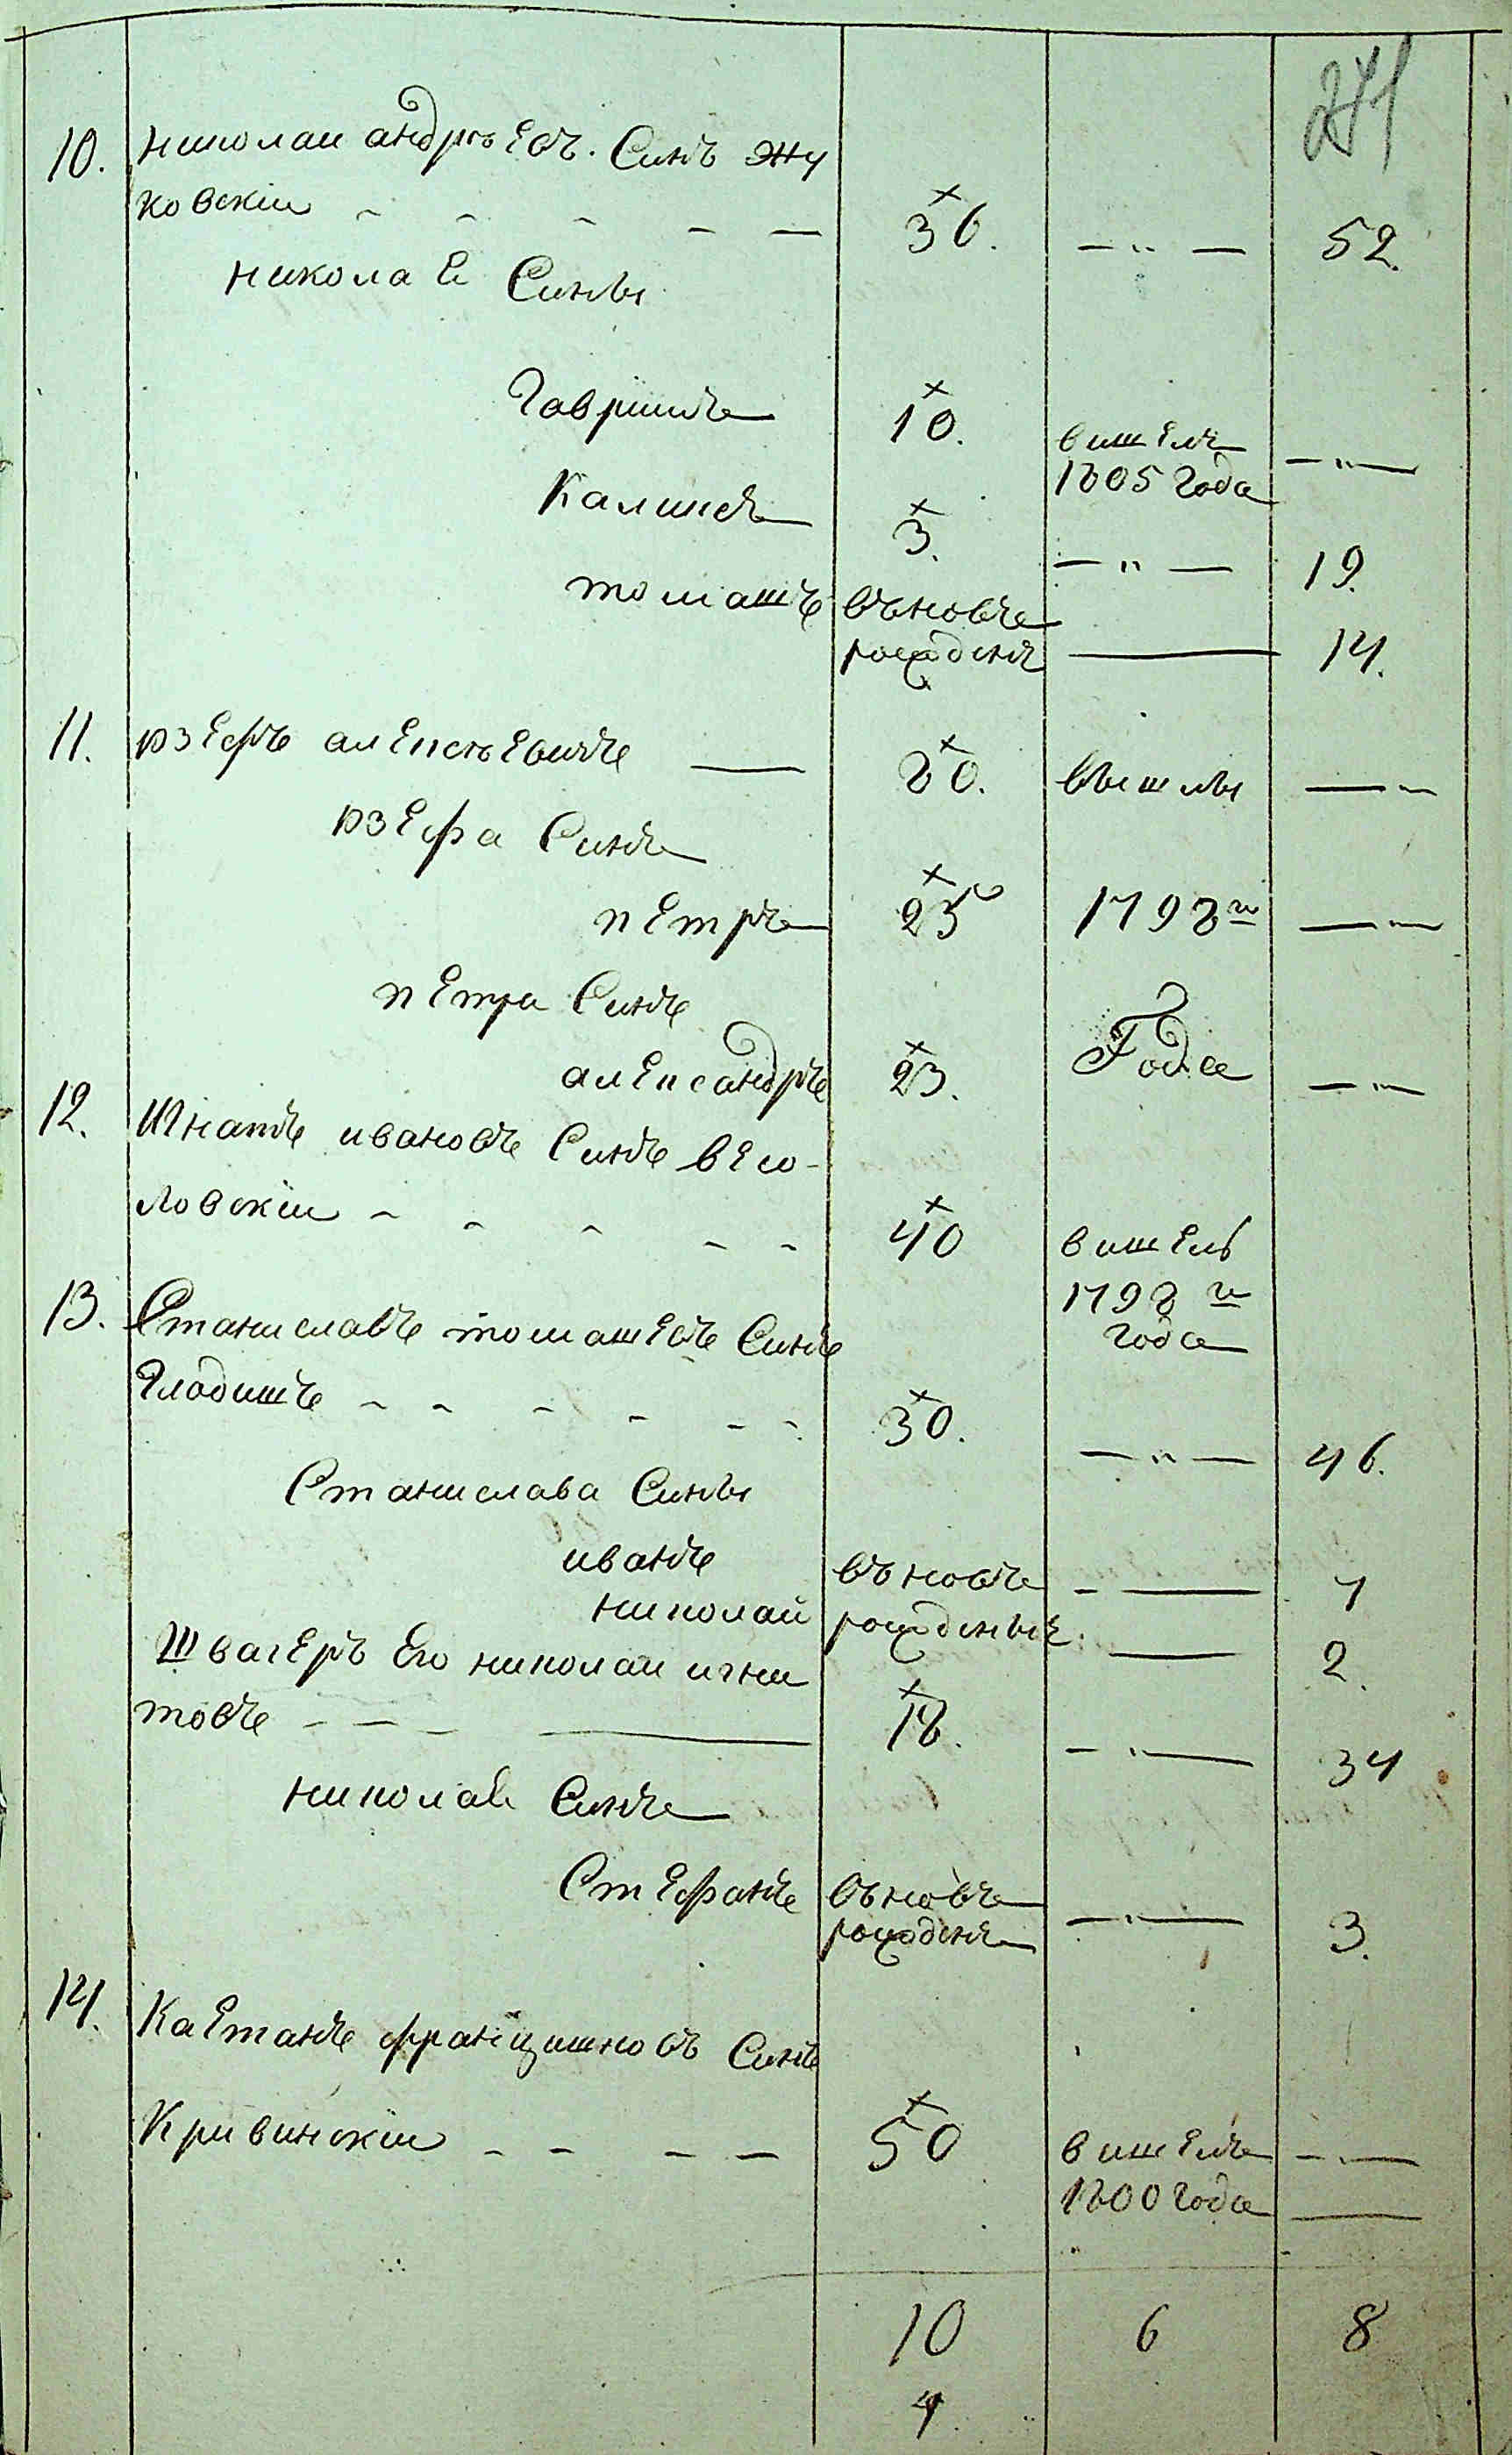 271
10. николаи андрѣевъ. Синъ жу
ковскіи 36. 52.
николаѣ Сины
Гаврилъ 10. вишелъ
1805 года
Калинъ 3. 19.
томашъ въновъ
рожденъ 14.
11. юзефъ алексѣевичъ 80. вышлы
юзефа Синъ
петръ 25 1798го
петра Синъ
Года
александръ 23.
12. Игнатъ ивановъ Синъ весо-
ловскіи 40 вишелъ
1798го
года
13. Станиславъ томашевъ Синъ
Гладишъ 30. 46.
Станислава Сины
иванъ въновъ 4
николай рожденыѣ 2.
Швагеръ Его николаи игна
товъ 18. 34
николаѣ Синъ
Стефанъ въновъ
рожденъ 3.
14. Каетанъ францишковъ Синъ
Кривинскіи 50 вишелъ
1800 года
10 6 8
4